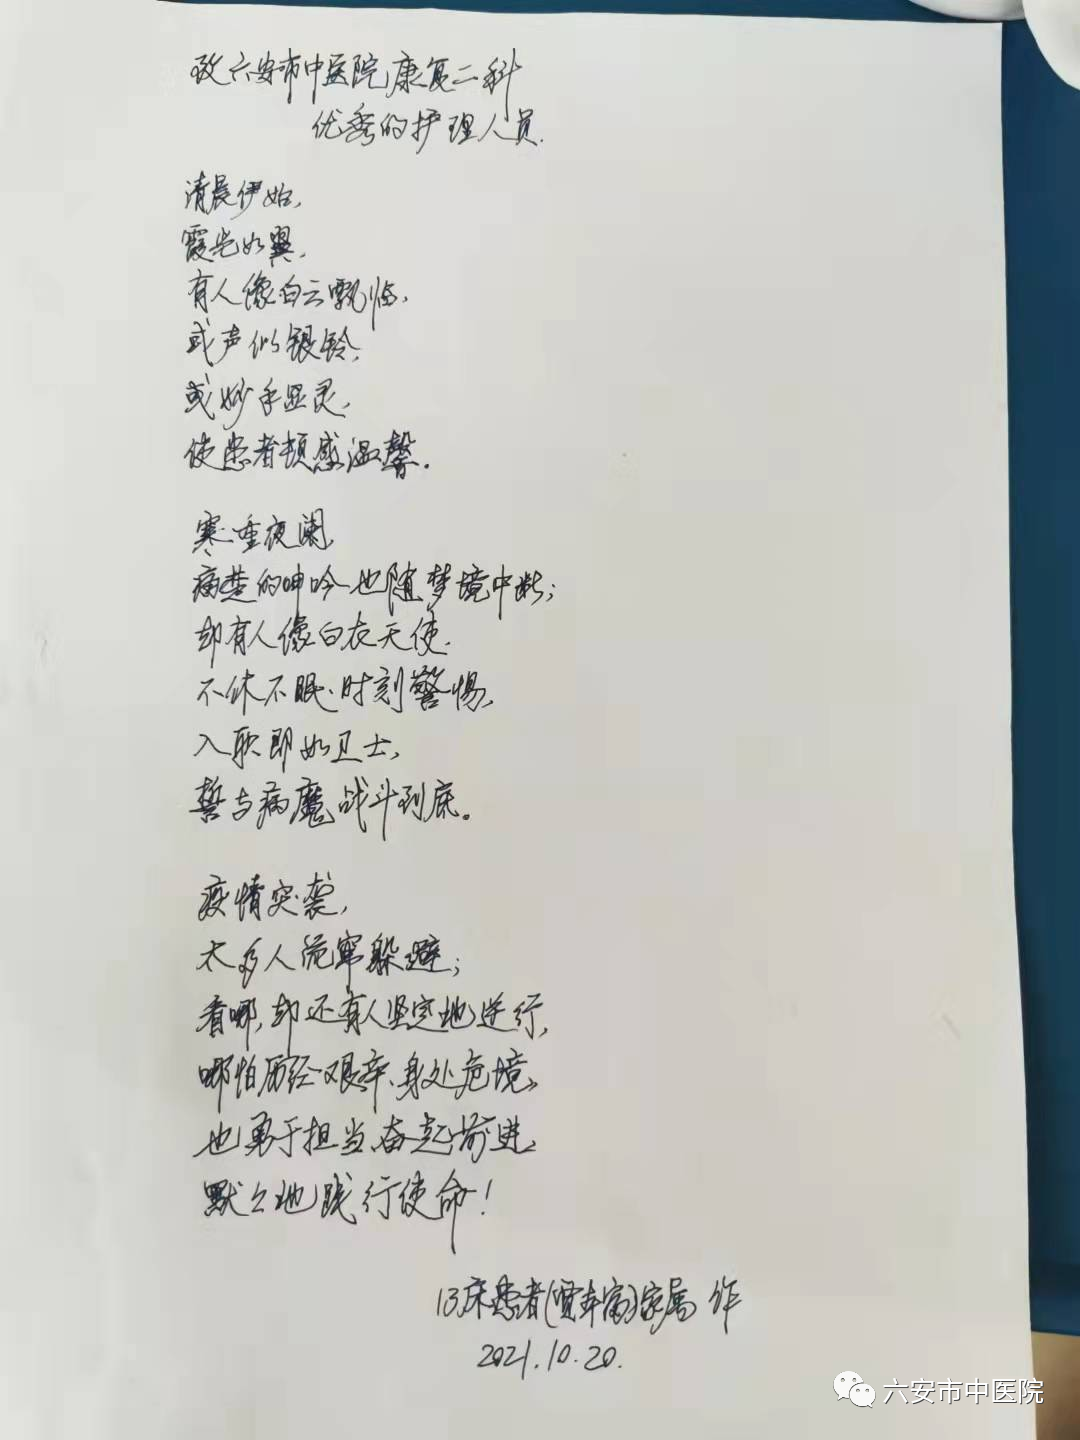 致六安市中医院康复二科
优秀的护理人员.
清晨伊始,
霞光如翼,
有人像白云飘临,
或声似银铃,
或妙手显灵,
使患者顿感温馨.
寒重夜阑,
病楚的呻吟也随梦境中断;
却有人像白衣天使.
不休不眠、时刻警惕,
入职即如卫士,
誓与病魔战斗到底。
疫情突袭,
太多人 躲避;
看哪,却还有人坚定地逆行,
哪怕历经艰辛、身处危境,
也勇于担当、奋起前进,
默々地践行使命!
13床患者(贾丰富)家属 作
2021.10.20.
六安市中医院